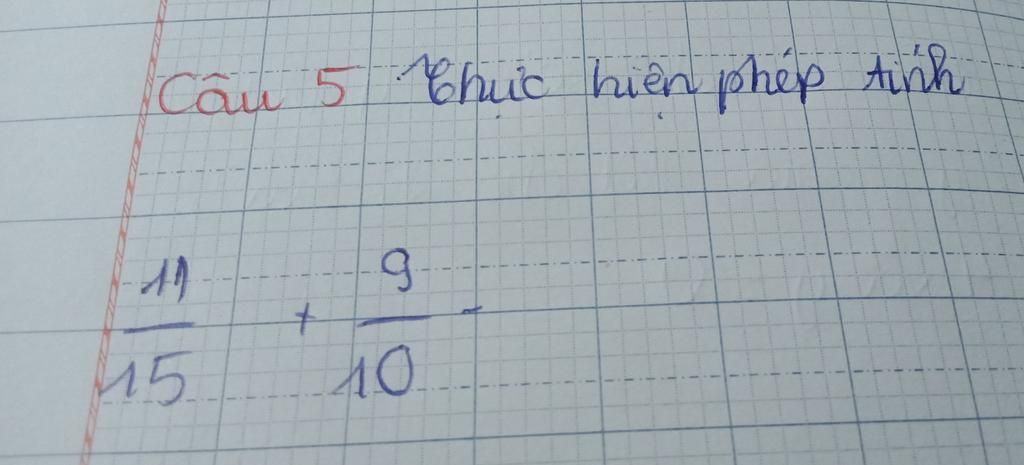 Câu 5 Thực hiện phép tính
11/15 + 9/10 -